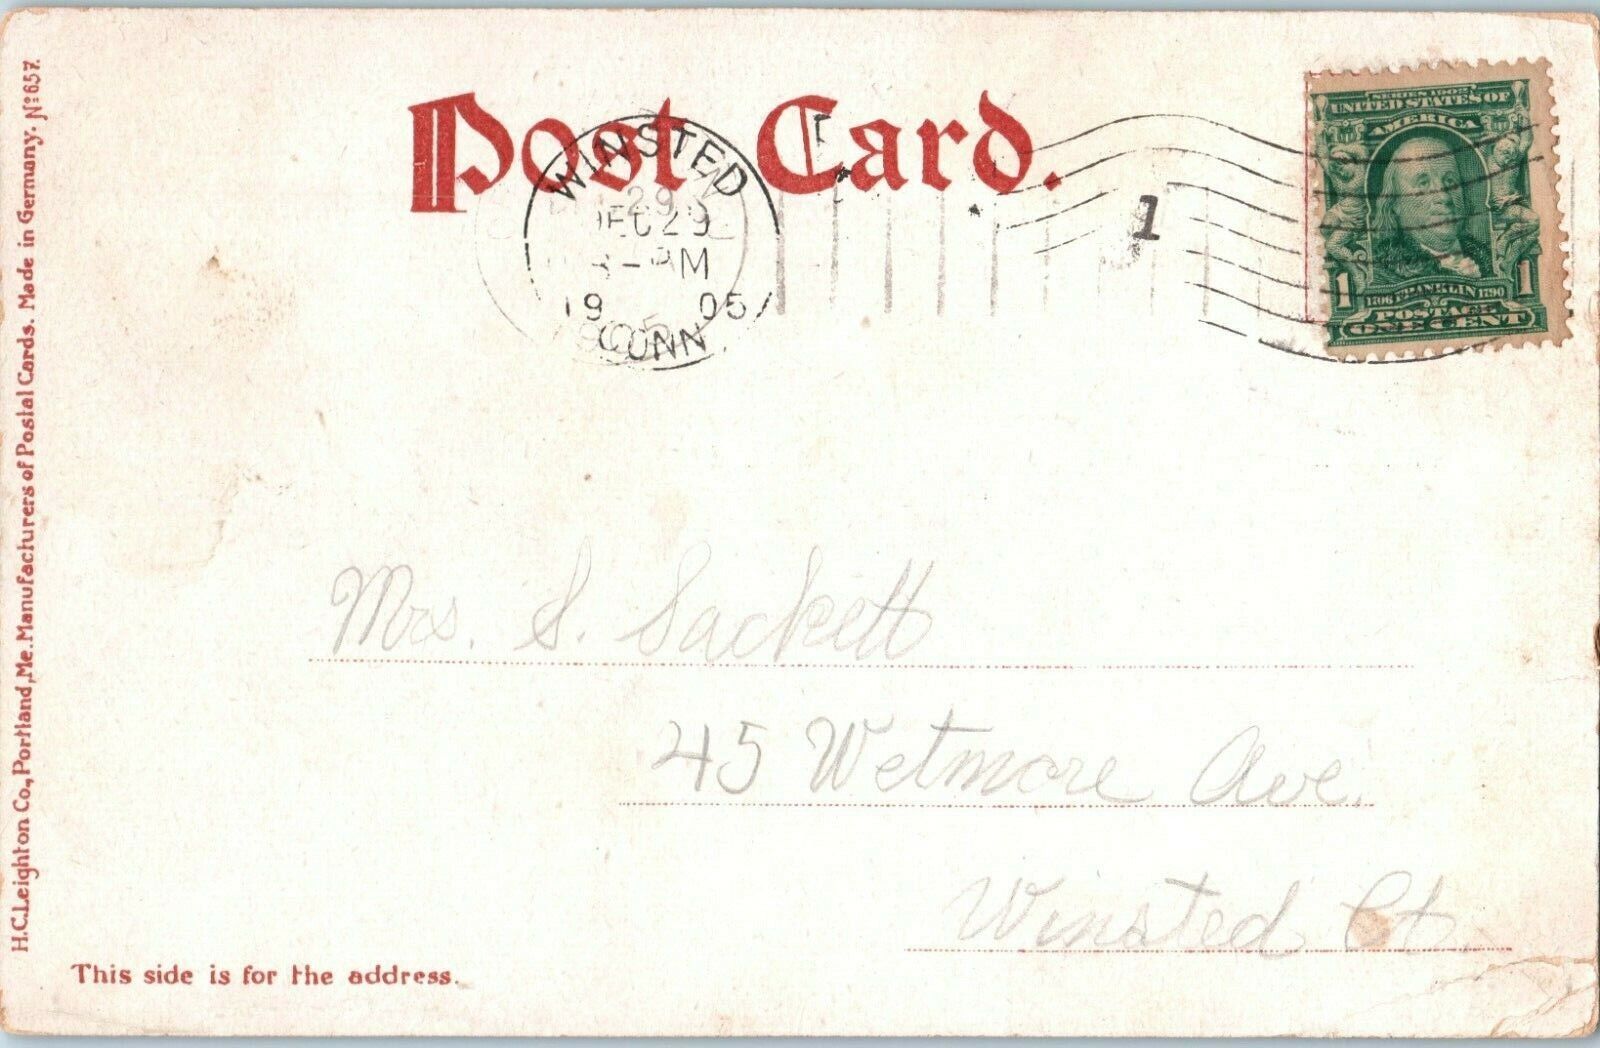 Post Card.
SERIES 1902
UNITED STATES OF
AMERICA
1706 FRANKLIN 1790
1 1
POSTAGE
ONE CENT
WINSTED
DEC 29
AM
19 05
CONN.
29
1
Mrs. S. Sackett
45 Wetmore Ave.
Winsted Ct.
This side is for the address.
H.C. Leighton Co., Portland, Me. Manufacturers of Postal Cards. Made in Germany. No 657.